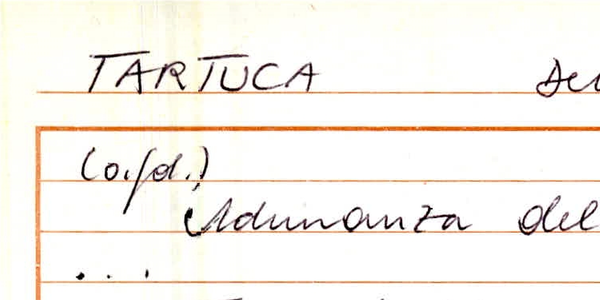 TARTUCA
(o.fd.)
Adunanza del
...